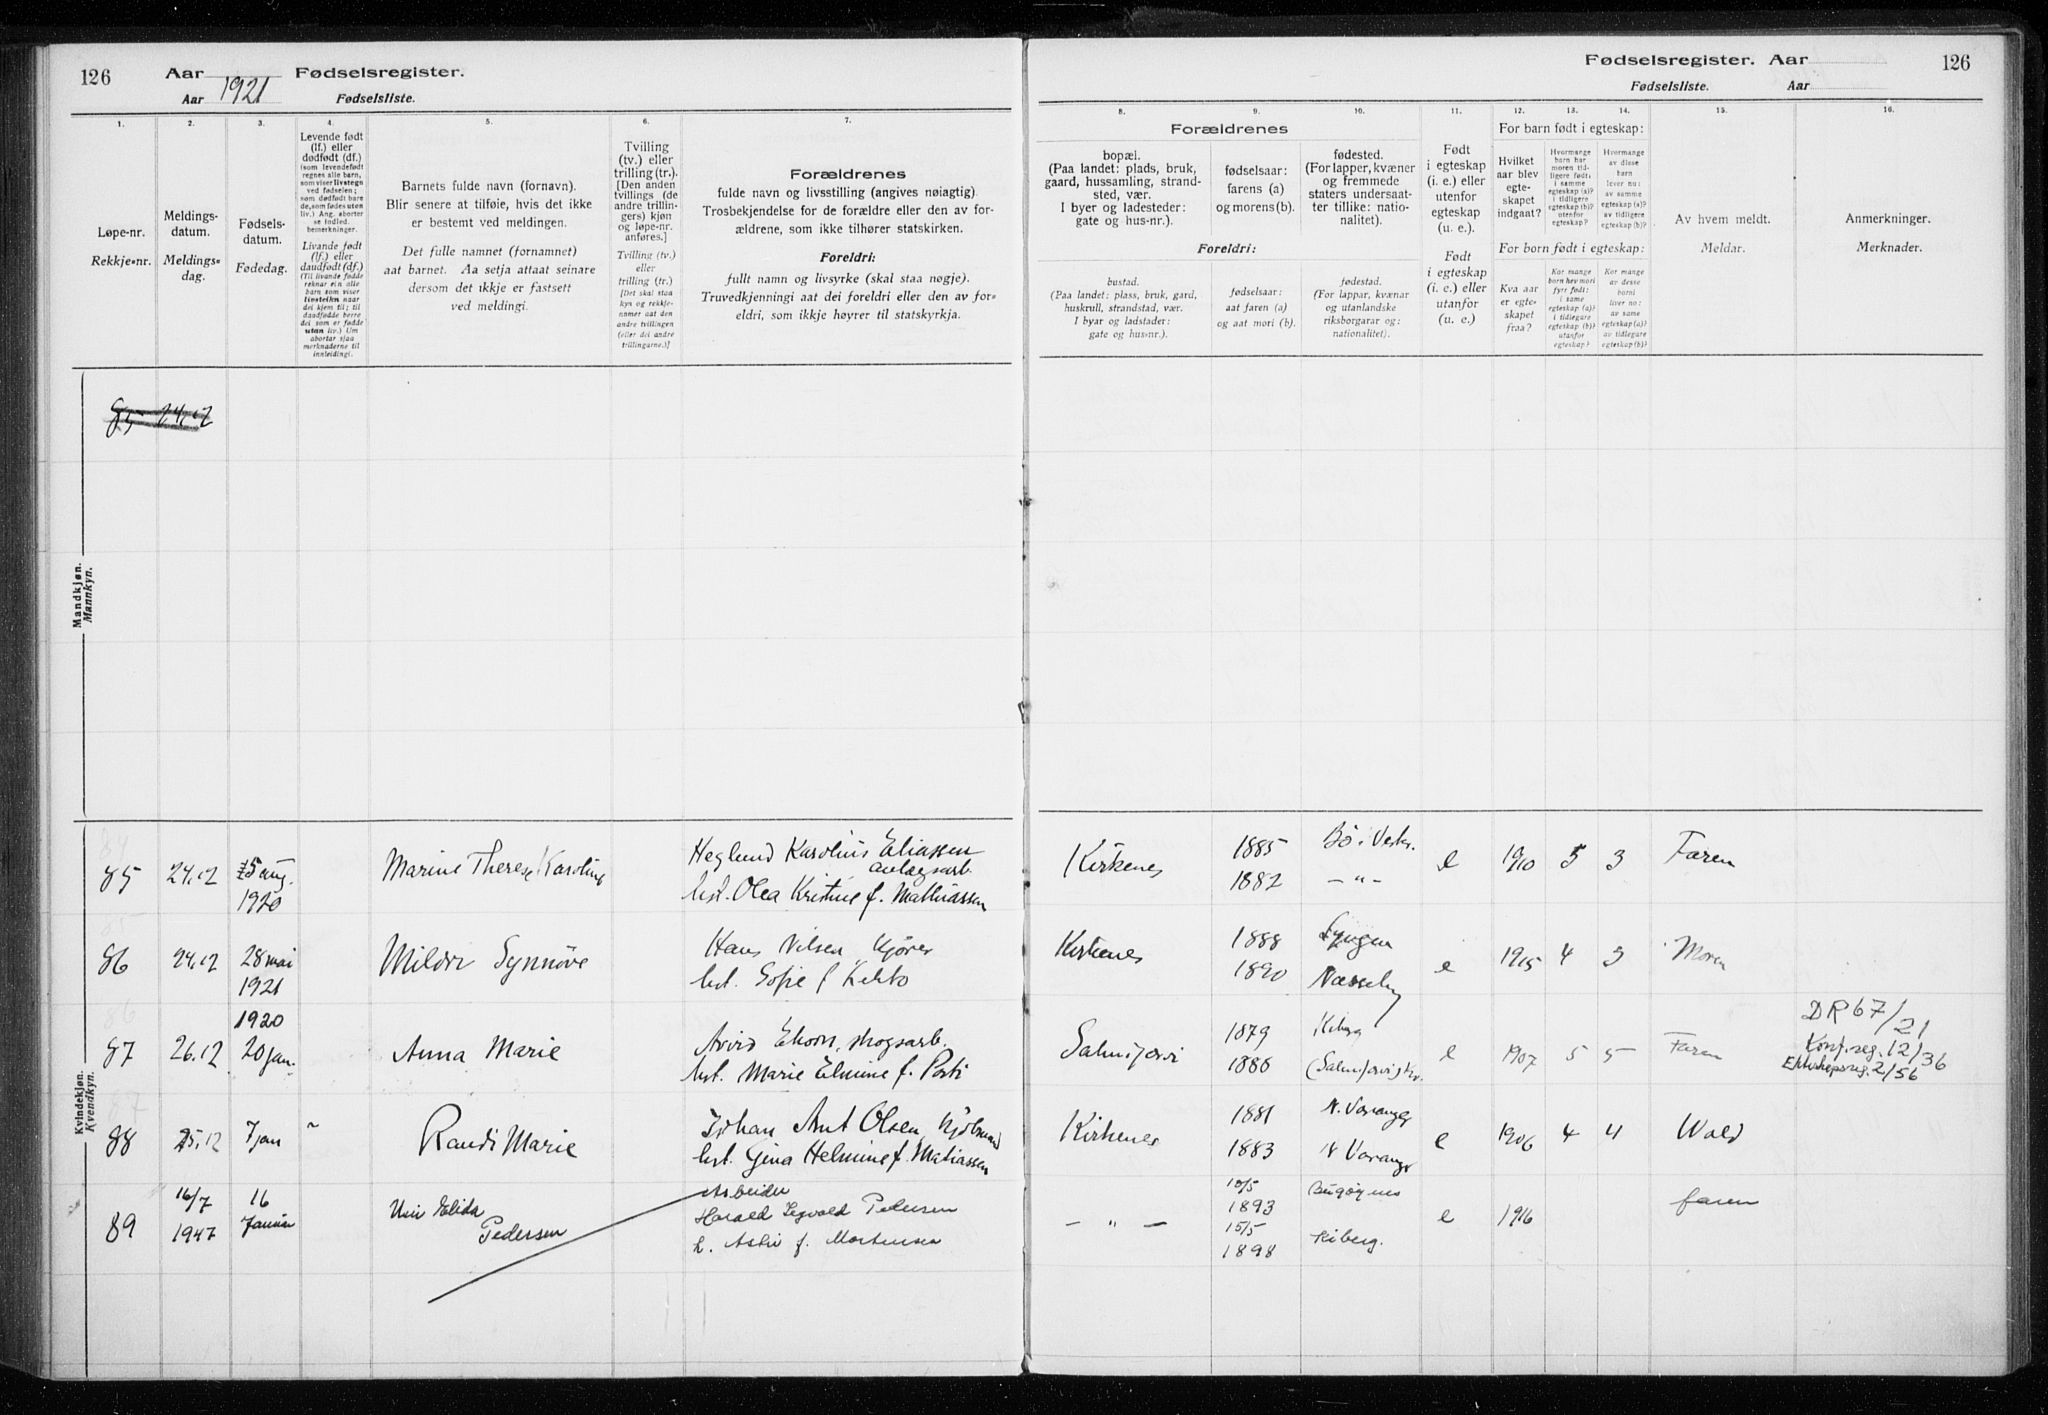 126 Aar 1921 Fødselsregister.
Aar Fødselsliste.
Fødselsregister. Aar 126
Fødselsliste. Aar
1.
Løpe-nr.
Rekkje-nr.
2.
Meldings-
datum.
Meldings-
dag.
3.
Fødsels-
datum.
Fødedag.
4.
Levende født
(lf.) eller
dødfødt (df.)
(som levendefødt
regnes alle barn,
som viser livstegn
ved fødselen;
som dødfødt bare
de, som fødes uten
liv.) Ang. aborter
se indled.
bemerkninger.
Livande født
(lf.) eller
daudfødt (df.)
(Til livande fødde
reknar ein alle
barn som viser
livsteikn naar
dei kjem til; til
daudfødde berre
dei som er fødde
utan liv.) Um
abortar sjaa
merknaderne til
innleidingi.
5.
Barnets fulde navn (fornavn).
Blir senere at tilføie, hvis det ikke
er bestemt ved meldingen.
Det fulle namnet (fornamnet)
aat barnet. Aa setja attaat seinare
dersom det ikkje er fastsett
ved meldingi.
6.
Tvilling
(tv.) eller
trilling (tr.).
[Den anden
tvillings (de
andre trillin-
gers) kjøn
og løpe-nr.
anføres.]
Tvilling (tv.)
eller
trilling (tr.)
[Det skal staa
kyn og rekkje-
numer aat den
andre tvillingen
(eller dei andre
trillingarne.)]
7.
Forældrenes
fulde navn og livsstilling (angives nøiagtig).
Trosbekjendelse for de forældre eller den av for-
ældrene, som ikke tilhører statskirken.
Foreldri:
fullt namn og livsyrke (skal staa nøgje).
Truvedkjenningi aat dei foreldri eller den av for-
eldri, som ikkje høyrer til statskyrkja.
8. 9. 10.
Forældrenes
bopæl.
(Paa landet: plads, bruk,
gaard, hussamling, strand-
sted, vær.
I byer og ladesteder:
gate og hus-nr.).
fødselsaar:
farens (a)
og morens (b).
fødested.
(For lapper, kvæner
og fremmede
staters undersaat-
ter tillike: natio-
nalitet).
Foreldri:
bustad.
(Paa landet: plass, bruk, gard,
huskrull, strandstad, vær.
I byar og ladstader:
gate og hus-nr.).
fødselsaar:
aat faren (a)
og aat mori (b).
fødestad.
(For lappar, kvænar
og utanlandske
riksborgarar og:
nationalitet).
11.
Født
i egteskap
(i. e.) eller
utenfor
egteskap
(u. e.).
Født
i egteskap
(i. e.) eller
utanfor
(u. e.)
12. 13. 14.
For barn født i egteskap:
Hvilket
aar blev
egte-
skapet
indgaat?
Hvormange
barn har
moren tid-
ligere født:
i samme
egteskap (a)?
i tidligere
egteskap (b)?
utenfor
egteskap?
Hvormange
av disse
barn
lever nu:
av samme
egteskap (a)?
av tidligere
egteskap (b)?
For born født i egteskap:
Kva aar
er egte-
skapet
fraa?
Kor mange
born hev mori
fyrr født:
i same
egteskap (a)?
i tidlegare
egteskap (b)?
utanfor
egteskap?
Kor mange
av desse
borni
liver no:
av same
egteskap (a)?
av tidlegare
egteskap (b)?
15.
Av hvem meldt.
Meldar.
16.
Anmerkninger.
Merknader.
Mandkjøn.
Mannkyn.
85 24.12
Kvindekjøn.
Kvendkyn.
84
85 24.12 25 aug. 1920 Marine Therese Karoline
Heglund Karolius Eliassen
Anlægsarb.
hst. Olea Kristine f. Mathiassen
Kirkenes 1885 Bø i Vester. e 1910 5 3 Faren
1882 -"-
85
86 24.12 28 mai 1921 Mildri Synnöve
Hans Nilsen kjører
hst. Sofie f Kehto
Kirkenes 1888 Lyngen e 1915 4 3 Moren
1890 Næsseby
86
87 26.12 1920 20 jan. Anna Marie
Arvid Ekorn, skogsarb.
hst. Marie Elmine f. Posti
Salmijærvi 1879 Kiberg e 1907 5 5 Faren
1886 (Salmijærvi
DR 67/21
Konf.reg. 12/36
Ekteskapsreg. 2/56
87
88 25.12 7 jan " Randi Marie
Johan Arnt Olsen, kjøbmand
hst. Gina Helmine f. Matiassen
Kirkenes 1881 N. Varanger e 1906 4 4 Wold
1883 N Varangr
89 16/7 1947 16 Januar Uni Elida Pedersen
Arbeider
Harald Segvald Pedersen
h. Astri f. Mortensen
- " - 10/5 1893 Bugøynes e 1916 faren
15/5 1898 Kiberg.